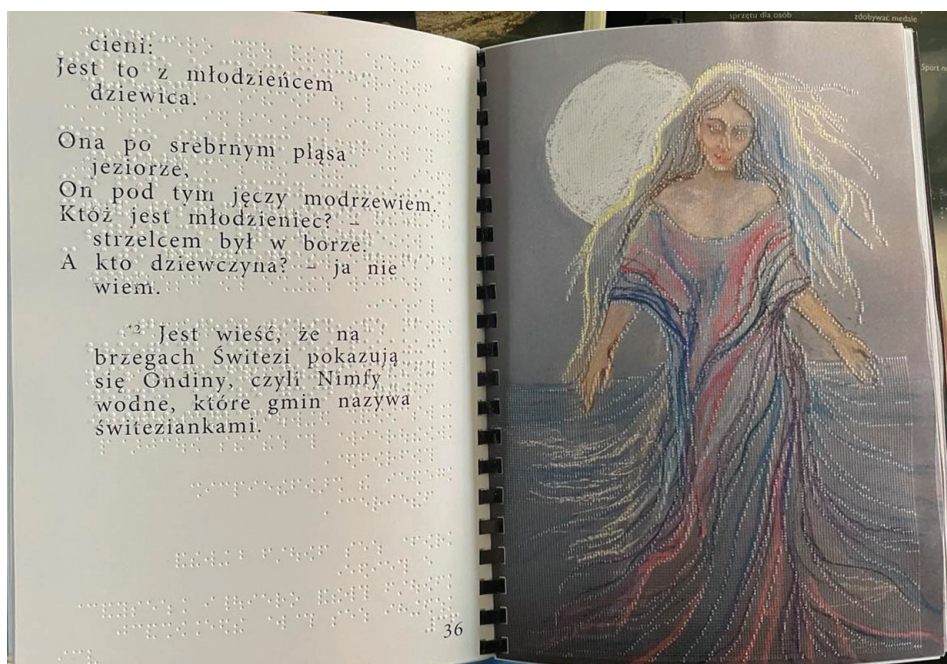 cieni:
Jest to z młodzieńcem
dziewica.
Ona po srebrnym pląsa
jeziorze,
On pod tym jęczy modrzewiem.
Któż jest młodzieniec? –
strzelcem był w borze.
A kto dziewczyna? – ja nie
wiem.
Jest wieść, że na
brzegach Świtezi pokazują
się Ondiny, czyli Nimfy
wodne, które gmin nazywa
świteziankami.
36
sprzętu dla osób
zdobywać medale
Sport